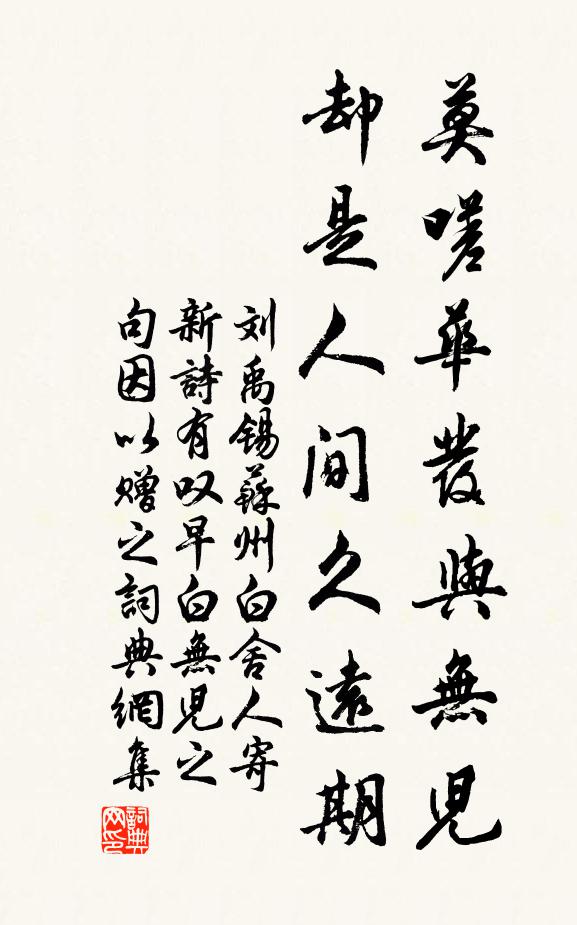 莫嗟華發與無兒
却是人間久遠期
刘禹錫蘇州白舍人寄
新詩有叹早白無兒之
句因以贈之詞典網集
詞典网印